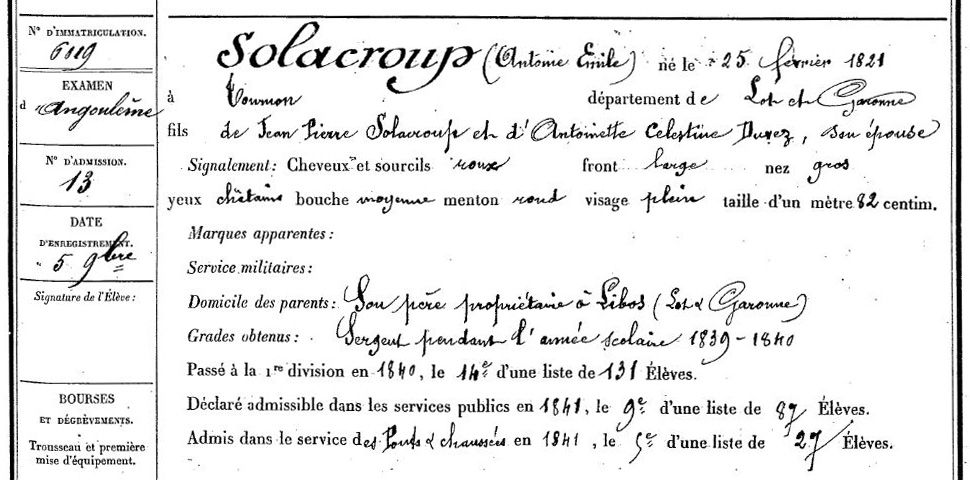 N° D'IMMATRICULATION.
6119
EXAMEN
d'Angoulême
N° D'ADMISSION.
13
DATE
D'ENREGISTREMENT.
5 9bre
Signature de l'Élève :
BOURSES
ET DÉGRÈVEMENTS.
Trousseau et première
mise d'équipement.
Solacroup (Antoine Emile) né le 25 février 1821
à Tournon département de Lot et Garonne
fils de Jean Pierre Solacroup et d'Antoinette Celestine Durez, son épouse
Signalement : Cheveux et sourcils roux front large nez gros
yeux châtains bouche moyenne menton rond visage plein taille d'un mètre 82 centim.
Marques apparentes :
Service militaires :
Domicile des parents : Son père propriétaire à Libos (Lot & Garonne)
Grades obtenus : Sergent pendant l'année scolaire 1839-1840
Passé à la 1re division en 1840, le 14e d'une liste de 131 Élèves.
Déclaré admissible dans les services publics en 1841, le 9e d'une liste de 87 Élèves.
Admis dans le service des Ponts & chaussées en 1841, le 5e d'une liste de 27 Élèves.